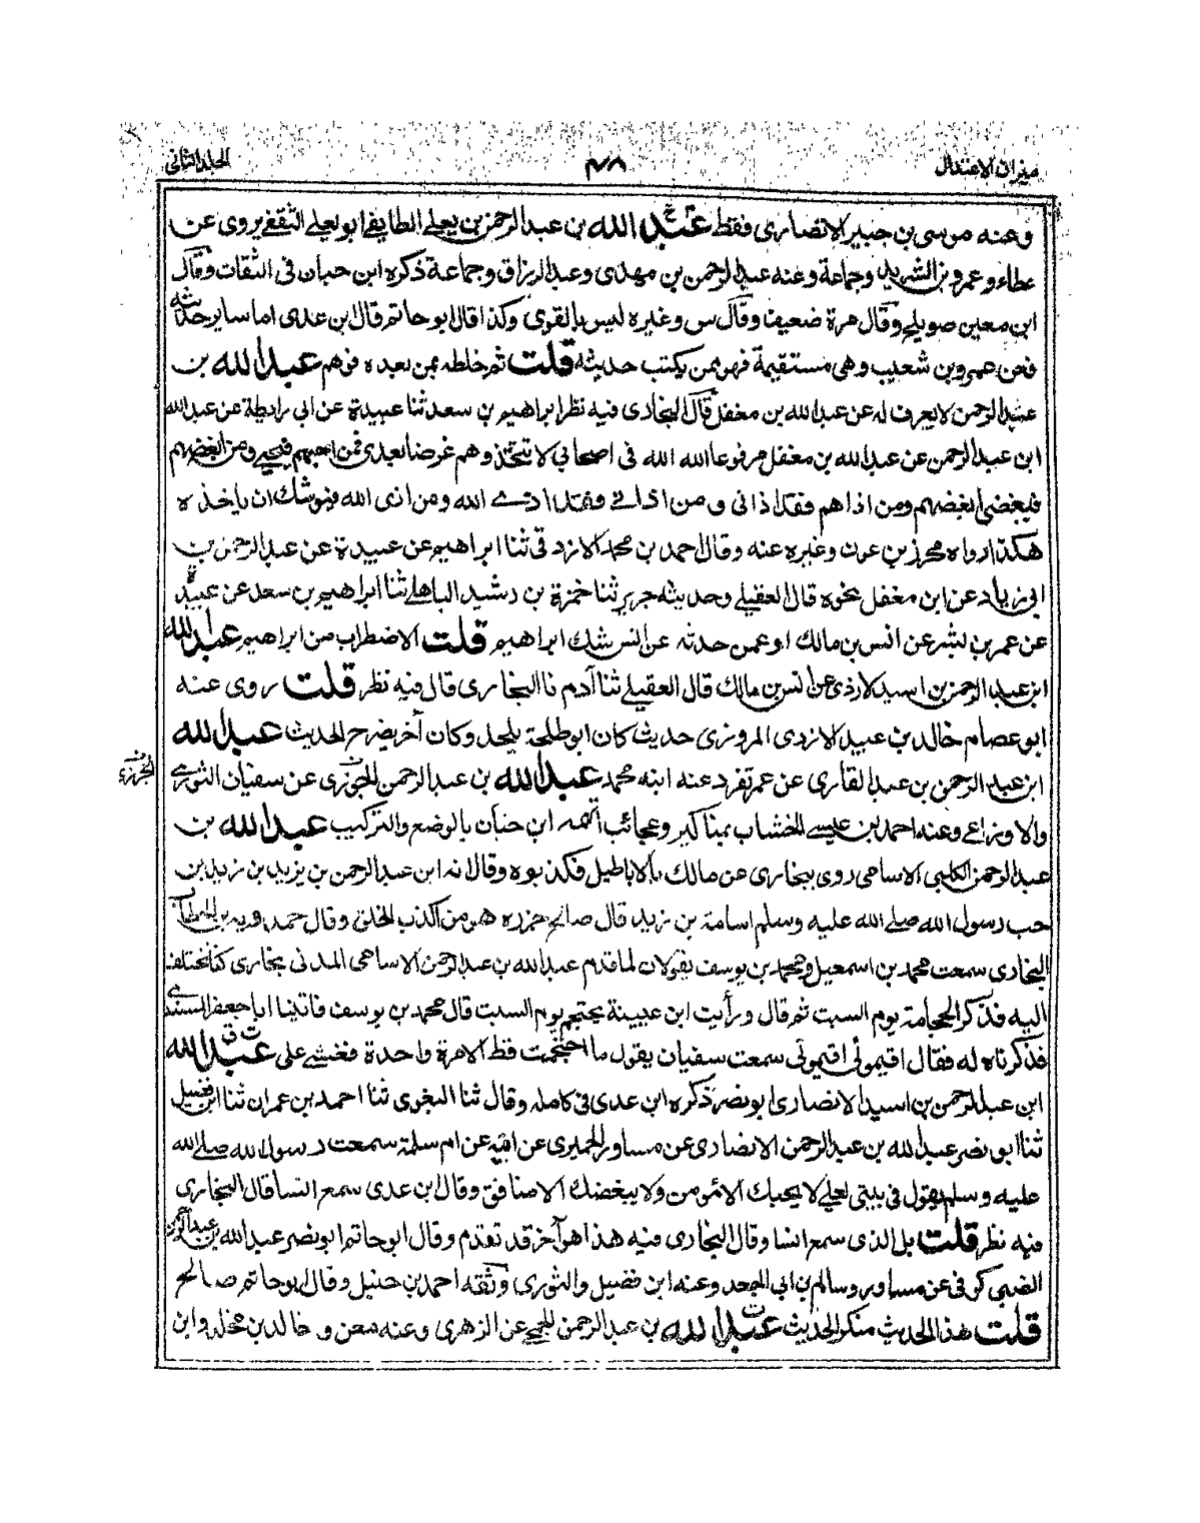 ميزان الاعتدال
٤٨
الجلد الثاني
وعنه موسى بن جبير الانصاري فقط عبد الله بن عبد الرحمن بن يعلي الطايفي ابو يعلي الثقفي يروي عن
عطاء وعمرو بن الشريد وجماعة وعنه عبد الرحمن بن مهدى وعبد الرزاق وجماعة ذكره ابن حبان فى الثقات وقال
ابن معين صويلح وقال مرة ضعيف وقال س وغيره ليس بالقوى وكذا قال ابو حاتم قال ابن عدى اما ساير حديثه
فعن عمرو بن شعيب وهى مستقيمة فهو ممن يكتب حديثه قلت ثم خلطه بمن بعده فوهم عبد الله بن
عبد الرحمن لا يعرف له عن عبد الله بن مغفل قال البخارى فيه نظر ابراهيم بن سعد ثنا عبيدة عن ابى رابطة عن عبد الله
ابن عبد الرحمن عن عبد الله بن مغفل مرفوعا الله الله فى اصحابي لا تتخذوهم غرضا بعدى فمن احبهم فبحبي ومن ابغضهم
فببغضى ابغضهم ومن اذاهم فقد اذانى ومن اذانے فقد اذے الله ومن اذى الله فيوشك ان ياخذه
هكذا رواه محرز بن عون وغيره عنه وقال احمد بن محمد الازرقى ثنا ابراهيم عن عبيدة عن عبد الرحمن بن
ابى زياد عن ابن مغفل بنحوه قال العقيلے وحديثه جرير ثنا حمزة بن رشيد الباهلے ثنا ابراهيم بن سعد عن عبيدة
عن عمر بن بشر عن انس بن مالك او عمن حدثه عن انس شك ابراهيم قلت الاضطراب من ابراهيم عبد الله
ابن عبد الرحمن بن اسيد لازدى عن انس بن مالك قال العقيلے ثنا آدم نا البخارى قال فيه نظر قلت روى عنه
ابو عصام خالد بن عبيد الازدى المروزى حديث كان ابو طلحة يلحد وكان آخر يضرح الحديث عبد الله
ابن عبد الرحمن بن عبد القارى عن عمر تفرد عنه ابنه محمد عبد الله بن عبد الرحمن الجوزى عن سفيان الثورے
الجزرى
والاوزاعے وعنه احمد بن عيسے الخشاب بمناكير وعجائب اتهمه ابن حبان بالوضع والتركيب عبد الله بن
عبد الرحمن الكلبى الاسامى روى ببخارى عن مالك بالاباطيل فكذبوه وقال انه ابن عبد الرحمن بن يزيد بن زيد بن
حب رسول الله صلے الله عليه وسلم اسامة بن زيد قال صالح جزره هو من اكذب الخلق وقال حمدويه بن الخطاب
البخارى سمعت محمد بن اسمعيل ومحمد بن يوسف يقولان لما قدم عبد الله بن عبد الرحمن الاسامى المدنى بخارى كنا نختلف
اليه فذكر الحجامة يوم السبت ثم قال ورأيت ابن عيينة يحتجم يوم السبت قال محمد بن يوسف فاتينا ابا جعفر المسندے
فذكرناه له فقال اقيمونى اقيمونى سمعت سفيان يقول ما احتجمت قط الا مرة واحدة فغشے على عبد الله
ابن عبد الرحمن بن اسيد الانصارى ابو نصر ذكره ابن عدى فى كامله وقال ثنا البغوى ثنا احمد بن عمران ثنا ابن فضيل
ثنا ابو نصر عبد الله بن عبد الرحمن الانصارى عن مساور الحميرى عن امه عن ام سلمة سمعت رسول الله صلے الله
عليه وسلم يقول فى بيتى لعلے لا يحبك الا مؤمن ولا يبغضك الا منافق وقال ابن عدى سمع انسا قال البخارى
فيه نظر قلت بل الذى سمع انسا وقال البخارى فيه هذا هو آخر قد تقدم وقال ابو حاتم ابو نصر عبد الله بن عبد الرحمن
الضبى كوفى عن مساور وسالم بن ابى الجعد وعنه ابن فضيل والثورى وثقه احمد بن حنبل وقال ابو حاتم صالح
قلت هذا الحديث منكر الحديث عبد الله بن عبد الرحمن الجمحے عن الزهرى وعنه معن و خالد بن مخلد وابن